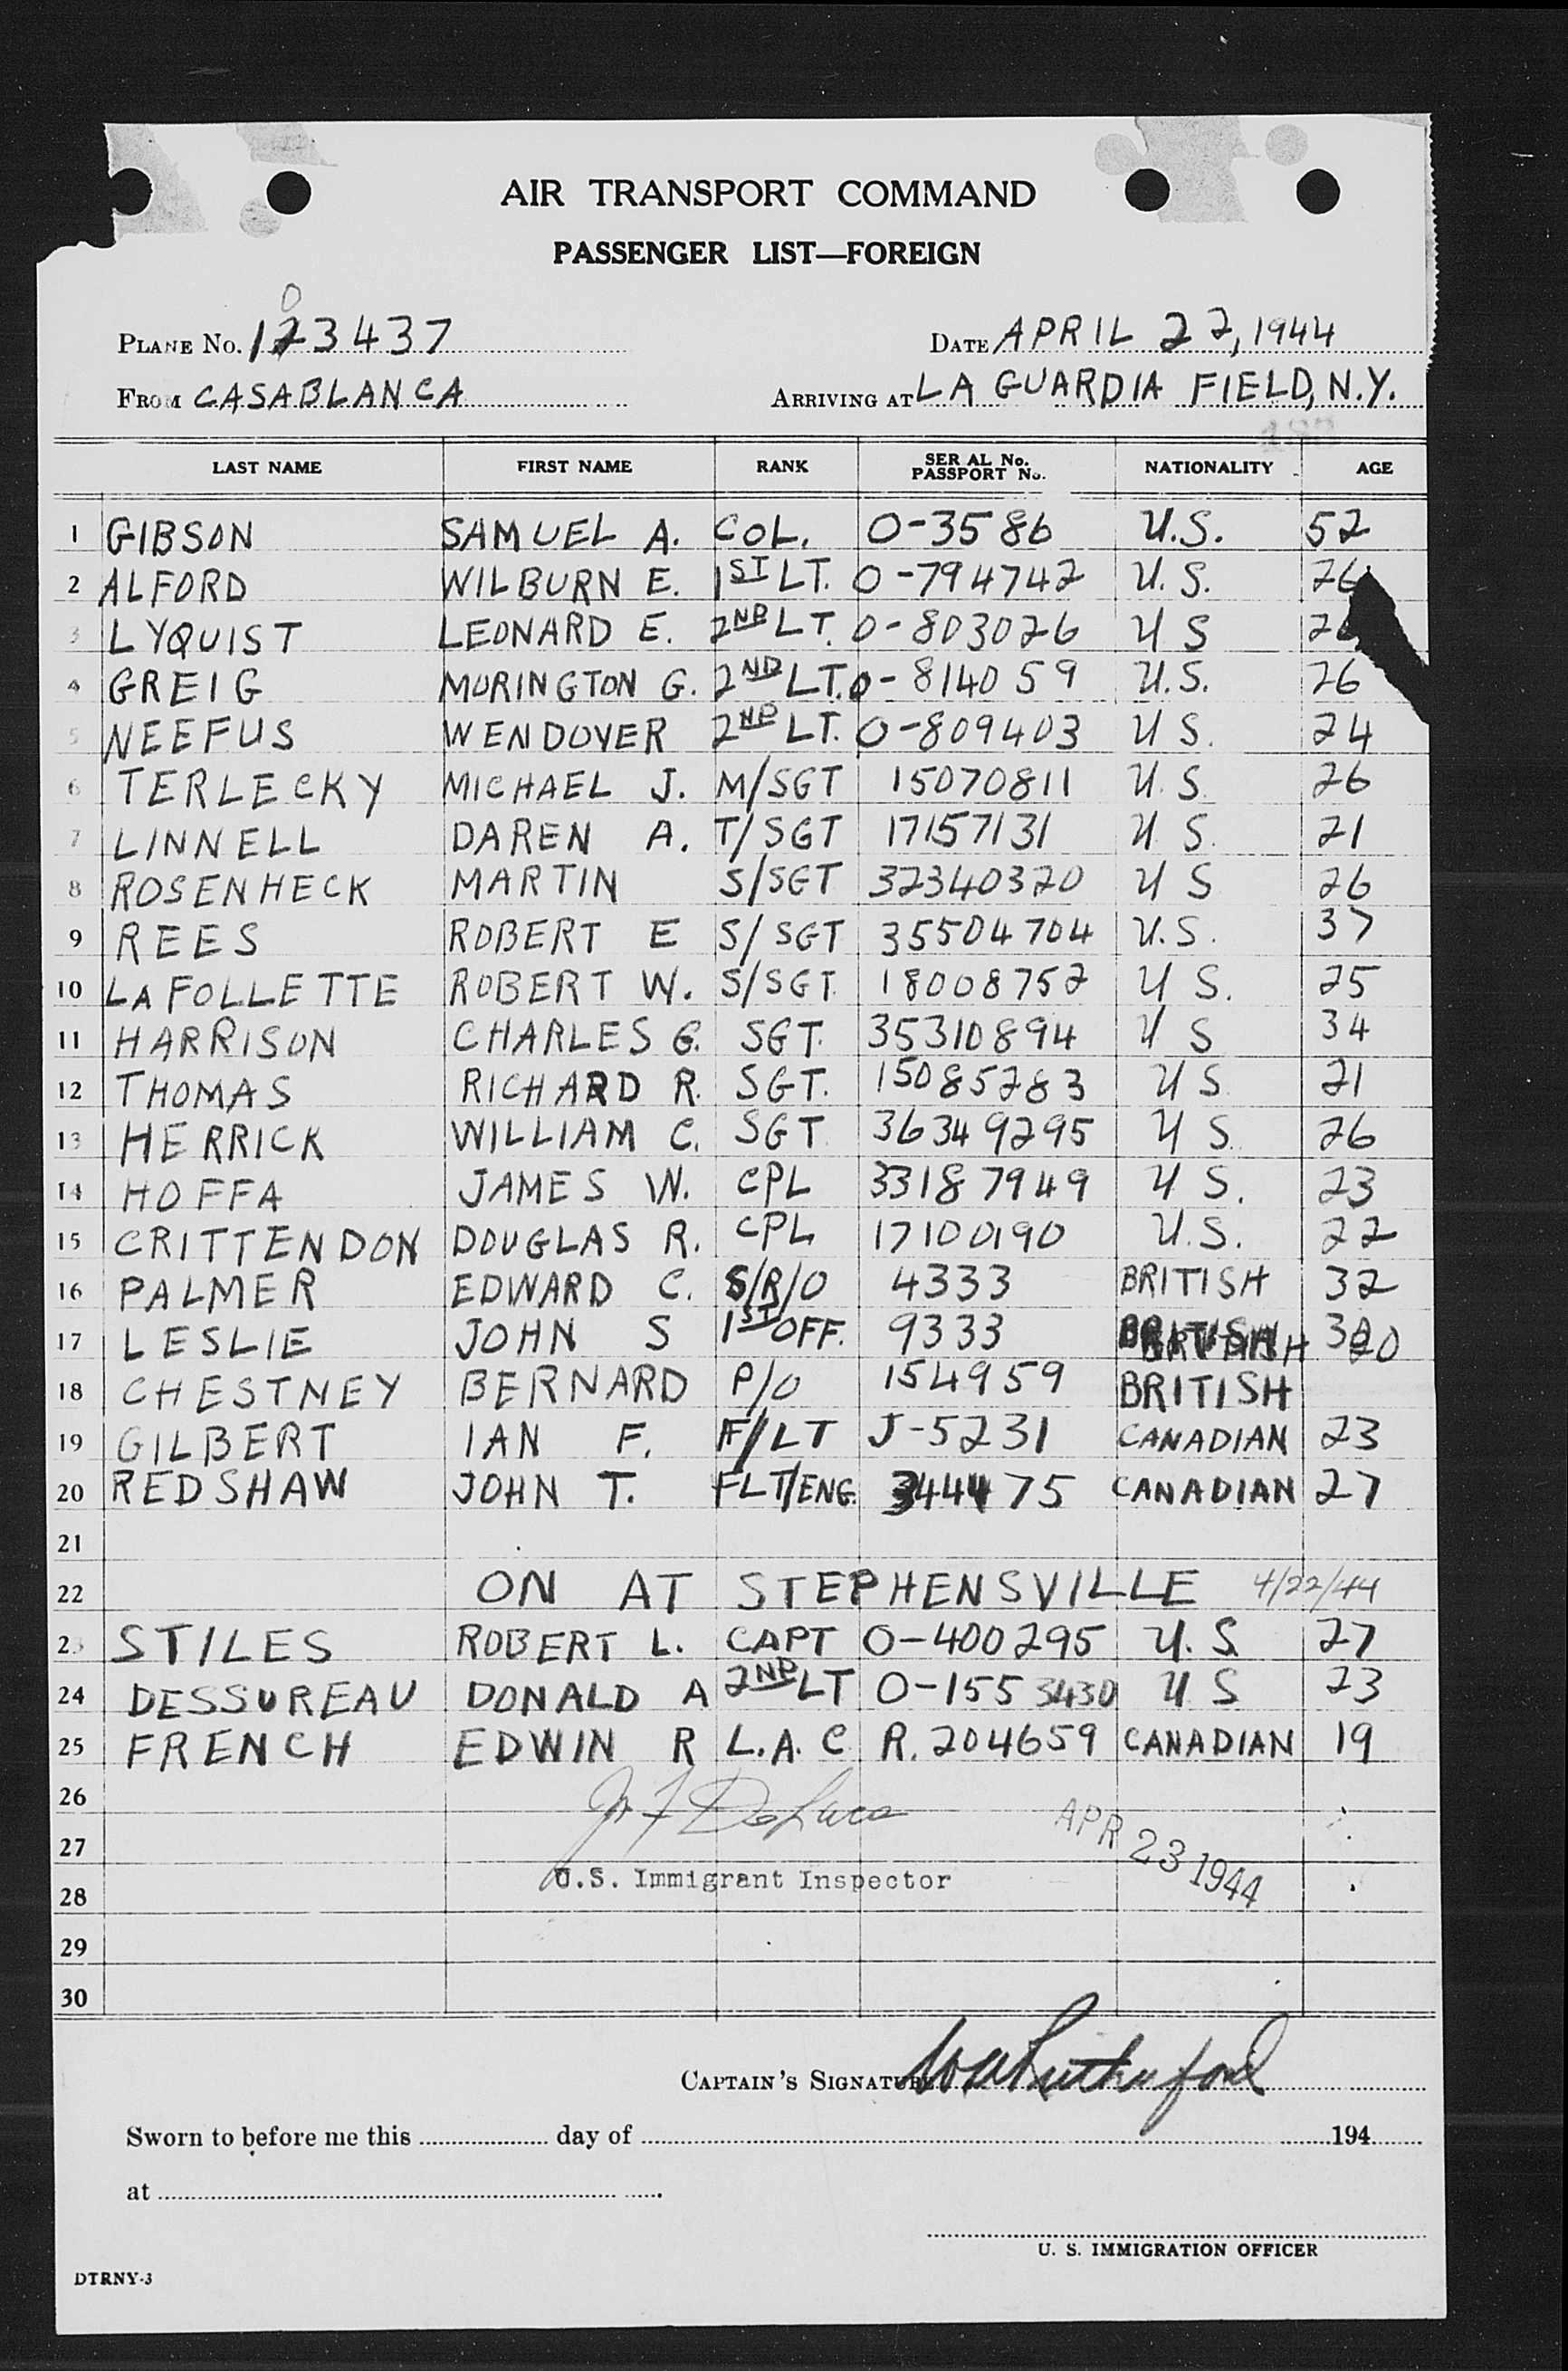 AIR TRANSPORT COMMAND
PASSENGER LIST—FOREIGN
PLANE No. 103437 DATE APRIL 22, 1944
FROM CASABLANCA ARRIVING AT LA GUARDIA FIELD, N.Y.
LAST NAME FIRST NAME RANK SERIAL No. PASSPORT No. NATIONALITY AGE
1 GIBSON SAMUEL A. COL. O-3586 U.S. 52
2 ALFORD WILBURN E. 1ST LT. O-794742 U.S. 26
3 LYQUIST LEONARD E. 2ND LT. O-803026 U S
4 GREIG MORINGTON G. 2ND LT. O-814059 U.S. 26
5 NEEFUS WENDOVER 2ND LT. O-809403 U S. 24
6 TERLECKY MICHAEL J. M/SGT 15070811 U.S. 26
7 LINNELL DAREN A. T/SGT 17157131 U S. 21
8 ROSENHECK MARTIN S/SGT 32340320 U S 26
9 REES ROBERT E S/SGT 35504704 U.S. 37
10 LAFOLLETTE ROBERT W. S/SGT 18008752 U S. 25
11 HARRISON CHARLES G. SGT. 35310894 U S 34
12 THOMAS RICHARD R. SGT. 15085283 U S 21
13 HERRICK WILLIAM C. SGT 36349295 U S. 26
14 HOFFA JAMES W. CPL 33187949 U S. 23
15 CRITTENDON DOUGLAS R. CPL 17100190 U.S. 22
16 PALMER EDWARD C. S/R/O 4333 BRITISH 32
17 LESLIE JOHN S 1ST OFF. 9333 BRITISH 30
18 CHESTNEY BERNARD P/O 154959 BRITISH
19 GILBERT IAN F. F/LT J-5231 CANADIAN 23
20 REDSHAW JOHN T. FLT/ENG. 344475 CANADIAN 27
21
22 ON AT STEPHENSVILLE 4/22/44
23 STILES ROBERT L. CAPT O-400295 U.S 27
24 DESSUREAU DONALD A 2ND LT O-1553430 U S 23
25 FRENCH EDWIN R L.A.C R.204659 CANADIAN 19
26
27 APR 23 1944
28 U.S. Immigrant Inspector
29
30
CAPTAIN'S SIGNATURE
Sworn to before me this day of 194
at
U. S. IMMIGRATION OFFICER
DTRNY-3